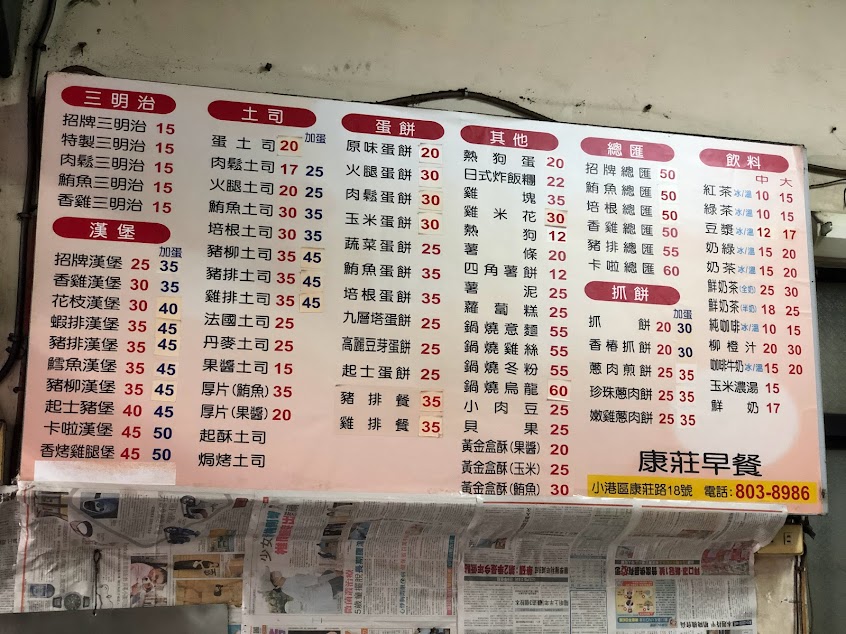 三明治
招牌三明治 15
特製三明治 15
肉鬆三明治 15
鮪魚三明治 15
香雞三明治 15
漢堡
加蛋
招牌漢堡 25 35
香雞漢堡 30 35
花枝漢堡 30 40
蝦排漢堡 35 45
豬排漢堡 35 45
鱈魚漢堡 35 45
豬柳漢堡 35 45
起士豬堡 40 45
卡啦漢堡 45 50
香烤雞腿堡 45 50
土司
加蛋
蛋土司 20
肉鬆土司 17 25
火腿土司 20 25
鮪魚土司 30 35
培根土司 30 35
豬柳土司 35 45
豬排土司 35 45
雞排土司 35 45
法國土司 25
丹麥土司 25
果醬土司 15
厚片(鮪魚) 35
厚片(果醬) 20
起酥土司
焗烤土司
蛋餅
原味蛋餅 20
火腿蛋餅 30
肉鬆蛋餅 30
玉米蛋餅 30
蔬菜蛋餅 25
鮪魚蛋餅 35
培根蛋餅 35
九層塔蛋餅 25
高麗豆芽蛋餅 25
起士蛋餅 25
豬排餐 35
雞排餐 35
其他
熱狗蛋 20
日式炸飯糰 22
雞塊 35
雞米花 30
熱狗 12
薯條 20
四角薯餅 12
薯泥 25
蘿蔔糕 25
鍋燒意麵 55
鍋燒雞絲 55
鍋燒冬粉 55
鍋燒烏龍 60
小肉豆 25
貝果 25
黃金盒酥(果醬) 20
黃金盒酥(玉米) 25
黃金盒酥(鮪魚) 30
總匯
招牌總匯 50
鮪魚總匯 50
培根總匯 50
香雞總匯 50
豬排總匯 55
卡啦總匯 60
抓餅
加蛋
抓餅 20 30
香椿抓餅 20 30
蔥肉煎餅 25 35
珍珠蔥肉餅 25 35
嫩雞蔥肉餅 25 35
飲料
中 大
紅茶 冰/溫 10 15
綠茶 冰/溫 10 15
豆漿 冰/溫 12 17
奶綠 冰/溫 15 20
奶茶 冰/溫 15 20
鮮奶茶(全奶) 25 30
鮮奶茶(半奶) 18 25
純咖啡 冰/溫 10 15
柳橙汁 20 30
咖啡牛奶 冰/溫 15 20
玉米濃湯 15
鮮奶 17
康莊早餐
小港區康莊路18號 電話:803-8986